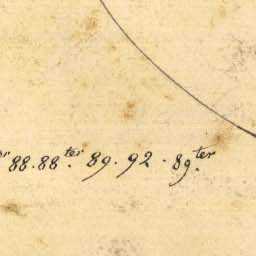 88. 88.ter 89. 92. 89.ter